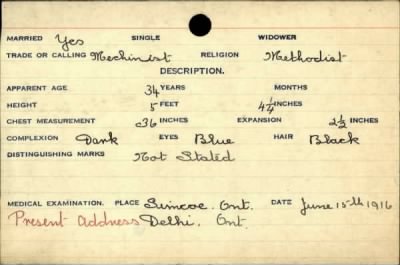 MARRIED Yes SINGLE WIDOWER
TRADE OR CALLING Mechinist RELIGION Methodist
DESCRIPTION.
APPARENT AGE 34 YEARS MONTHS
HEIGHT 5 FEET 4¼ INCHES
CHEST MEASUREMENT 36 INCHES EXPANSION 2½ INCHES
COMPLEXION Dark EYES Blue HAIR Black
DISTINGUISHING MARKS Not Stated
MEDICAL EXAMINATION. PLACE Simcoe. Ont. DATE June 15th 1916
Present Address Delhi. Ont.